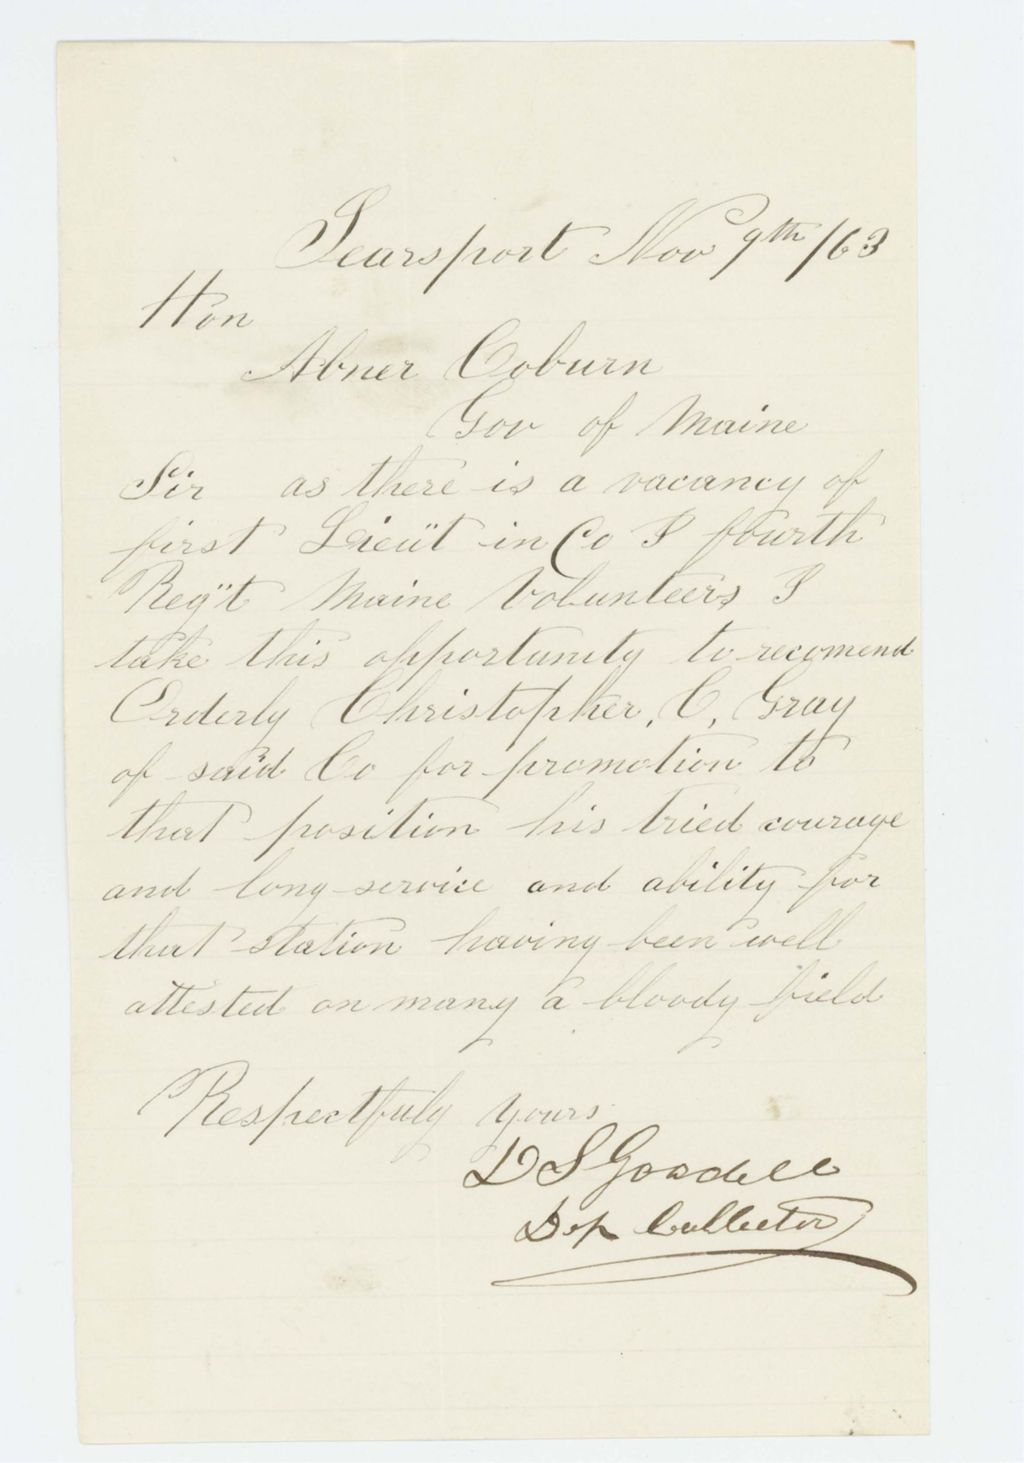 Searsport Nov 9th /63
Hon
Abner Coburn
Gov of Maine
Sir as there is a vacancy of
first Lieut in Co I fourth
Reg"t Maine Volunteers I
take this opportunity to recomend
Orderly Christopher, C, Gray
of said Co for promotion to
that position his tried courage
and long service and ability for
that station having been well
attested on many a bloody field
Respectfuly yours
D S Goodell
Dep Collector